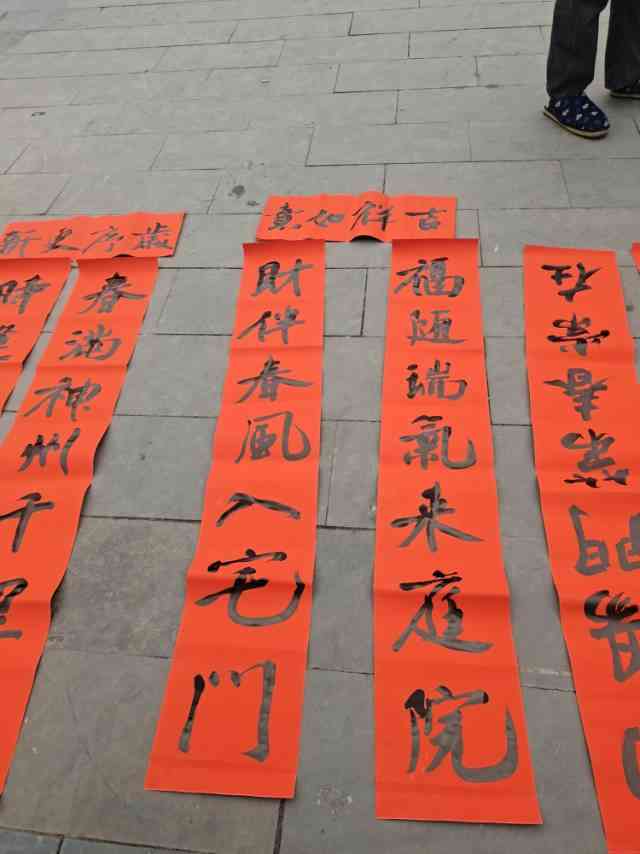 吉祥如意
歲序更新
門第春常在
福随瑞氣来庭院
財伴春風入宅門
春满神州千里